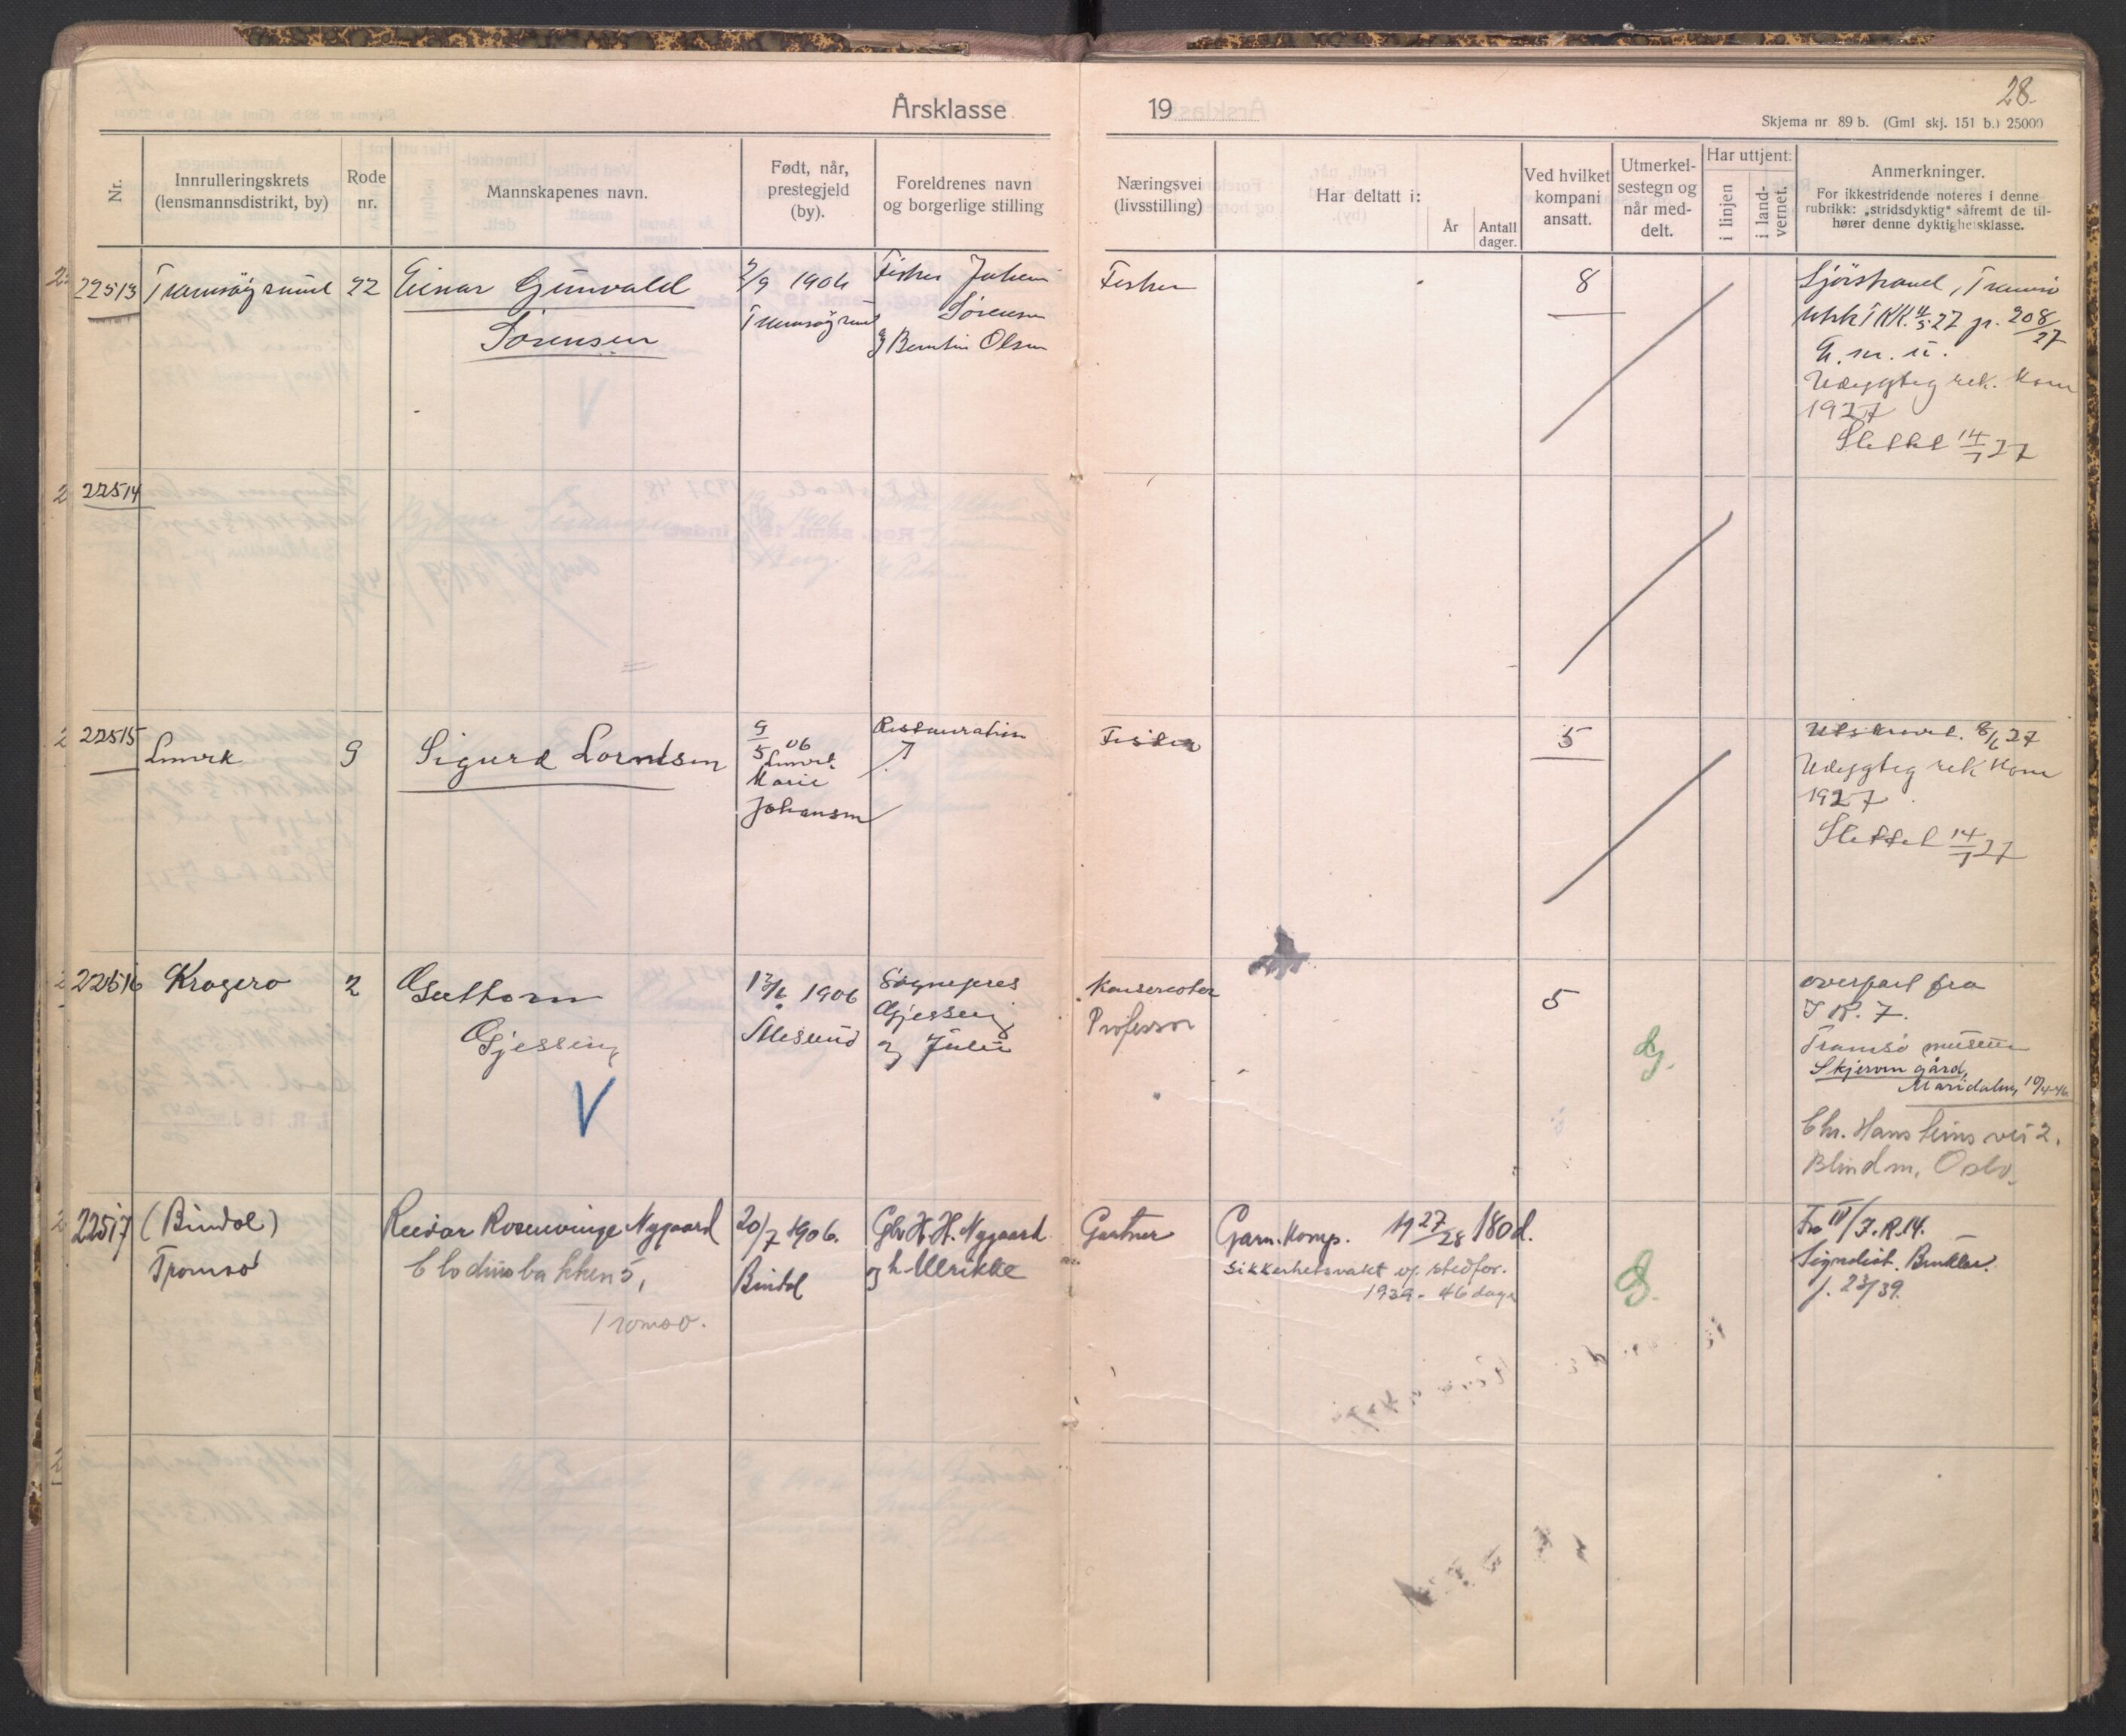 28.
Årsklasse 19
Skjema nr 89 b. (Gml skj. 151 b.) 25000
Nr.
Innrulleringskrets
(lensmannsdistrikt, by)
Rode
nr.
Mannskapenes navn.
Født, når,
prestegjeld
(by).
Foreldrenes navn
og borgerlige stilling
Næringsvei
(livsstilling)
Har deltatt i:
År
Antall
dager.
Ved hvilket
kompani
ansatt.
Utmerkel-
sestegn og
når med-
delt.
Har uttjent:
i linjen
i land-
vernet.
Anmerkninger.
For ikkestridende noteres i denne
rubrikk: „stridsdyktig" såfremt de til-
hører denne dyktighetsklasse.
22513
Tromsøysund
22
Einar Gunvald
Sørensen
/9 1906
Tromsøysund
Fisker Johan
Sørensen
og Olsen
Fisker
8
Tromsø
27 gr. 208/27
Udygtig rek. kom
1927
Slettet 14/7 27
22514
22515
Lenvik
9
Sigurd Lorntsen
9/5 06
Lenvik
Marie
Johansen
Fisker
5
27
Udygtig rek kom
1927
Slettet 14/7 27
22516
Kragerø
2
Gutorm
Gjessing
V
1906
Ålesund
Sogneprest
Gjessing
og Julie
Konservator
Professor
5
overført fra
I R. 7.
Tromsø museum
Skjerven gård,
Maridalen, 10/4-46.
Chr. Hansteens vei 2.
Blindern, Oslo.
22517
(Bindal)
Tromsø
Reidar Rosenvinge Nygaard
Clodiusbakken 5,
Tromsø.
20/7 1906.
Bindal
Gbr H. H. Nygaard
og h. Ulrikke
Gartner
Garn. Komp. 19 27/28 180 d.
Sikkerhetsvakt og stedfor.
1939 - 46 dager
Fra IV/I.R.14.